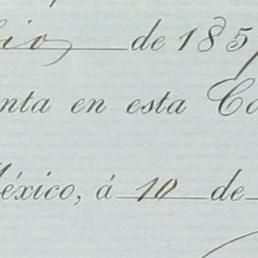 de 185
nta en esta Co
éxico, á 10 de